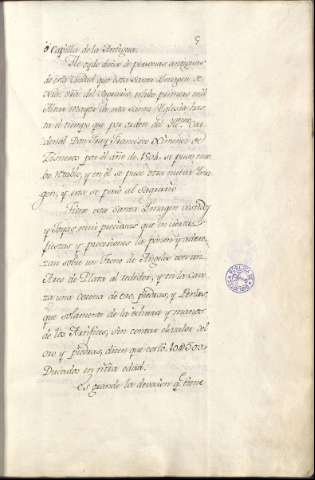 5
ô Capilla de la Antigua.
He oydo decir de personas antiguas
de esta Ciudad que esta Santa Imagen de
Nra. Sra. del Sagrario, estubo primero en el
Altar mayor de esta santa Iglesia has-
ta el tiempo que por orden del Illmo. Car-
denal Don Fray Francisco Ximenez de
Cisneros por el año de 1504. se puso nue-
bo Retablo, y en el se puso otra nueva Ima-
gen, y esta se pasó al Sagrario.
Tiene esta Santa Imagen vestidos
y Joyas mui preciosas que en ciertas
fiestas y procesiones la ponen y adere-
zan sobre un Trono de Angeles con un
Arco de Plata al rededor, y en la Cave-
za una corona de oro, piedras, y Perlas,
que solamente de la echura y manos
de los Artifices, sin contar el valor del
oro y piedras, dicen que costó 10$500
Ducados en nra edad.
Es grande la devocion q. tiene